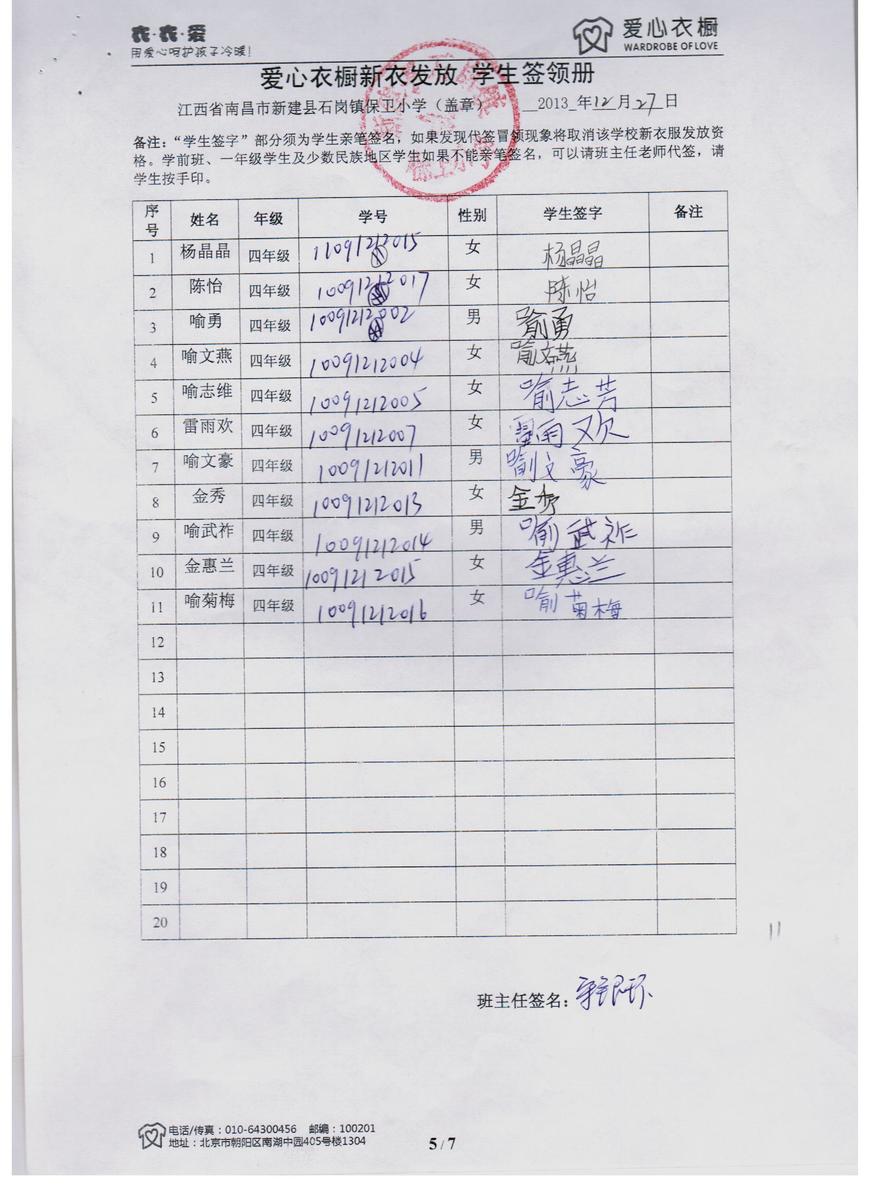 衣·衣·爱
用爱心呵护孩子冷暖!
爱心衣橱
WARDROBE OF LOVE
爱心衣橱新衣发放 学生签领册
江西省南昌市新建县石岗镇保卫小学（盖章） 2013 年 12 月 27 日
备注：“学生签字”部分须为学生亲笔签名，如果发现代签冒领现象将取消该学校新衣服发放资
格。学前班、一年级学生及少数民族地区学生如果不能亲笔签名，可以请班主任老师代签，请
学生按手印。
序号 姓名 年级 学号 性别 学生签字 备注
1 杨晶晶 四年级 女 杨晶晶
2 陈怡 四年级 女 陈怡
3 喻勇 四年级 男 喻勇
4 喻文燕 四年级 10091212004 女 喻文燕
5 喻志维 四年级 10091212005 女 喻志芳
6 雷雨欢 四年级 10091212007 女 雷雨欢
7 喻文豪 四年级 10091212011 男 喻文豪
8 金秀 四年级 10091212013 女 金秀
9 喻武祚 四年级 10091212014 男 喻武祚
10 金惠兰 四年级 10091212015 女 金惠兰
11 喻菊梅 四年级 10091212016 女 喻菊梅
12
13
14
15
16
17
18
19
20
11
班主任签名：
电话/传真：010-64300456 邮编：100201
地址：北京市朝阳区南湖中园405号楼1304
5 / 7